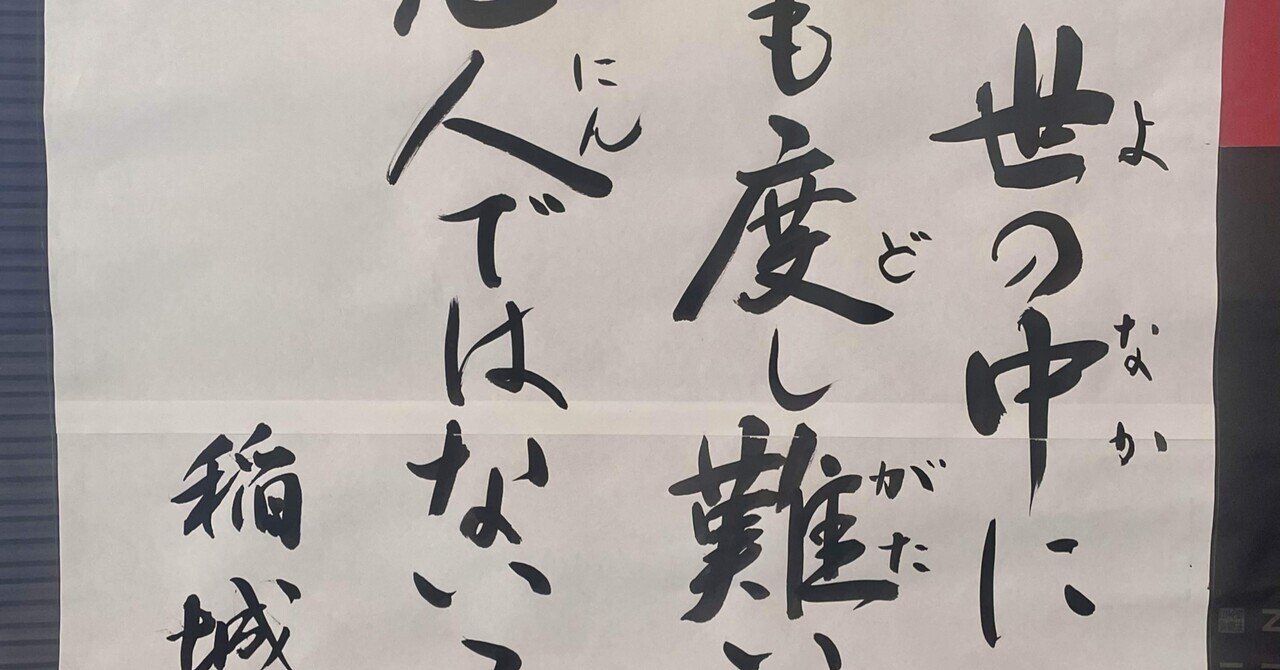 世の中に
よ なか
も度し難い
ど がた
人ではない
にん
稲城